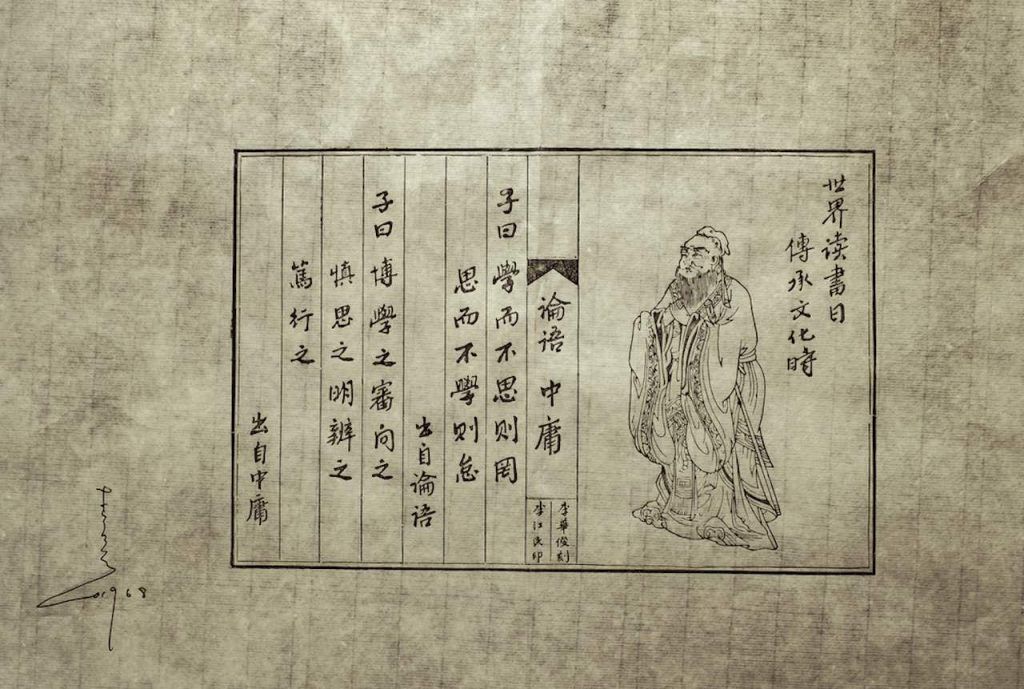 世界读書日
傳承文化時
论语 中庸
李華俊刻
李江民印
子曰學而不思则罔
思而不學则怠
出自论语
子曰博學之審问之
慎思之明辨之
篤行之
出自中庸
1968